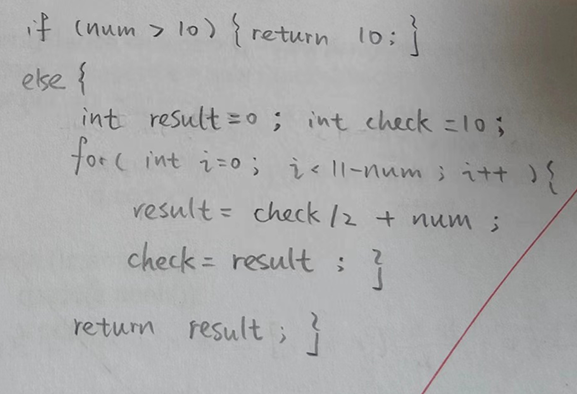 if (num > 10) { return 10; }
else {
int result = 0 ; int check = 10 ;
for( int i=0 ; i < 11-num ; i++ ) {
result = check /2 + num ;
check = result ; }
return result ; }